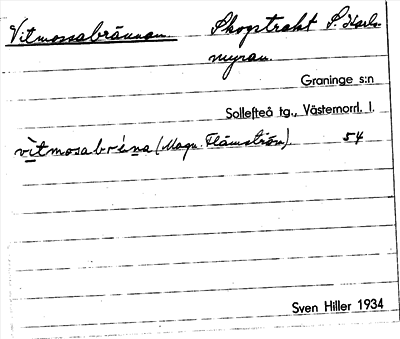 Vitmossabrännan. Skogstrakt S. Karls-
myran.
Graninge s:n
Sollefteå tg., Västernorrl. l.
vìtmosabréna (Magn. Flämström). 54
Sven Hiller 1934